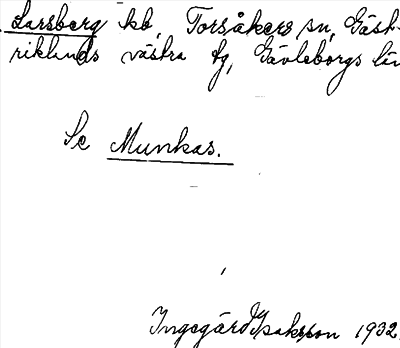 Larsberg kb, Torsåkers sn, Gäst-
riklands västra tg, Gävleborgs län
Se Munkas.
Ingegärd Isaksson 1932.